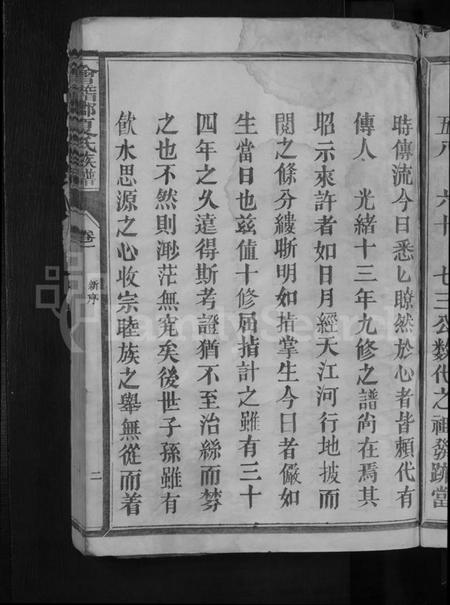 五八 六十 七三公數代之祖發跡當
時傳流今日悉已瞭然於心者皆賴代有
傳人 光緒十三年九修之譜尚在焉其
昭示來許者如日月經天江河行地披而
閱之條分縷晣明如指掌生今日者儼如
生當日也茲值十修屆指計之雖有三十
四年之久遠得斯考證猶不至治絲而棼
之也不然則渺茫無究矣後世子孫雖有
飲水思源之心收宗睦族之舉無從而着
會稽郡夏氏族譜
卷一
新序
二
FamilySearch